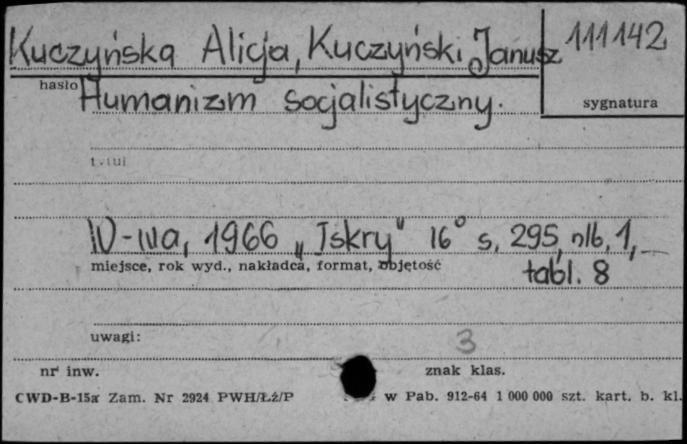 Kuczyńska Alicja, Kuczyński Janusz 111142
hasło Humanizm socjalistyczny. sygnatura
tytuł
W-wa, 1966 „Iskry" 16° s. 295, nlb, 1,
miejsce, rok wyd., nakładca, format, objętość tabl. 8
uwagi: 3
nr inw. znak klas.
CWD-B-15a Zam. Nr 2924 PWH/Łź/P w Pab. 912-64 1 000 000 szt. kart. b. kl.